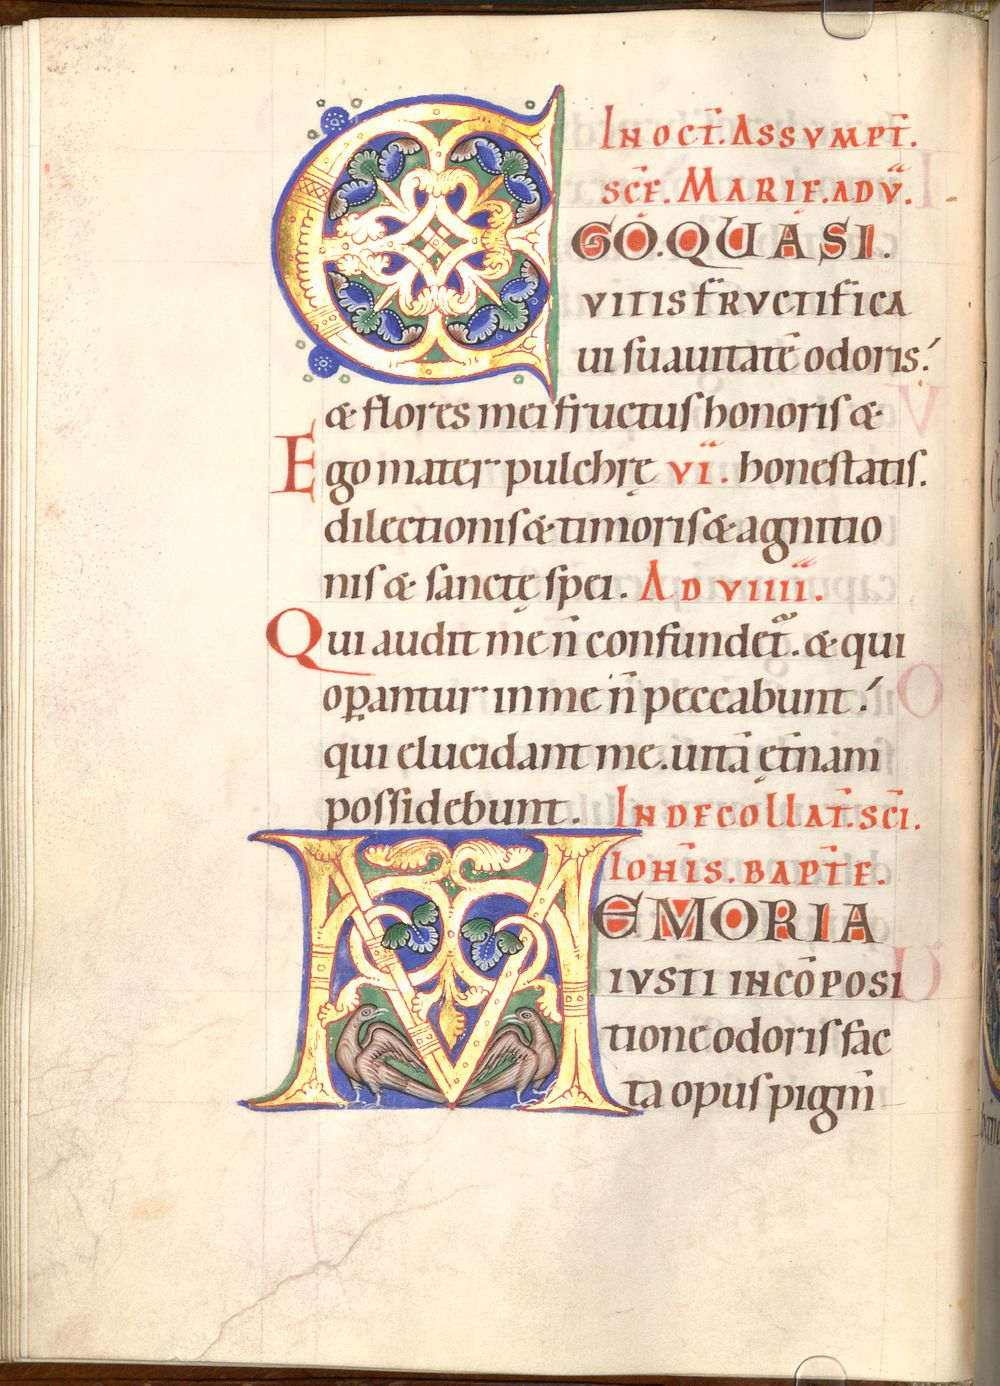 IN OCT̄. ASSVMPT̄.
SC̄E. MARIE. AD V̈.
EGO. QUASI.
VITIS FRVCTIFICA
ui suauitatē odoris!
& flores mei fructus honoris &
Ego mater pulchrę VI. honestatis.
dilectionis & timoris & agnitio
nis & sanctę spei. AD VIIII.
Qui audit me n̄ confundet̄. & qui
oꝑantur in me n̄ peccabunt!
qui elucidant me. uitā ęt̄nam
possidebunt. IN DECOLLAT̄. SC̄I.
IOHIS̄. BAPTE̅.
MEMORIA
IVSTI IN CŌPOSI
tione odoris fac
ta opus pigm̄